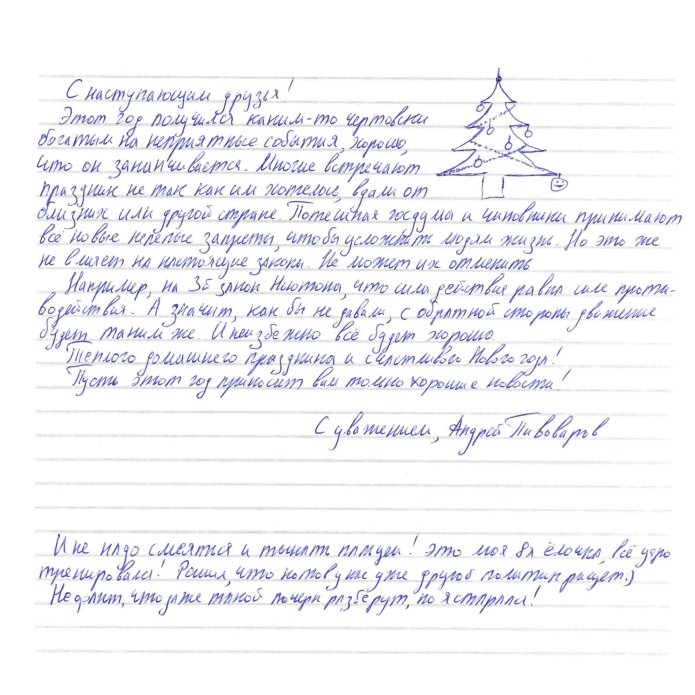 С наступающим друзья!
Этот год получился каким-то чертовски
богатым на неприятные события, хорошо,
что он заканчивается. Многие встречают
праздник не так как им хотелось, вдали от
близких или другой стране. Потешная госдума и чиновники принимают
всё новые нелепые запреты, чтобы усложнить людям жизнь. Но это же
не влияет на настоящие законы. Не может их отменить
Например, на 3й закон Ньютона, что сила действия равна силе проти-
водействия. А значит, как бы не давили, с обратной стороны движение
будет таким же. И неизбежно всё будет хорошо
Тёплого домашнего праздника и счастливого Нового года!
Пусть этот год приносит вам только хорошие новости!
С уважением, Андрей Пивоваров
И не надо смеяться и тыкать пальцем! Это моя 8я ёлочка, всё утро
тренировался! Решил, что котов у нас уже другой политик рисует:)
Не факт, что даже такой почерк разберут, но я старался!